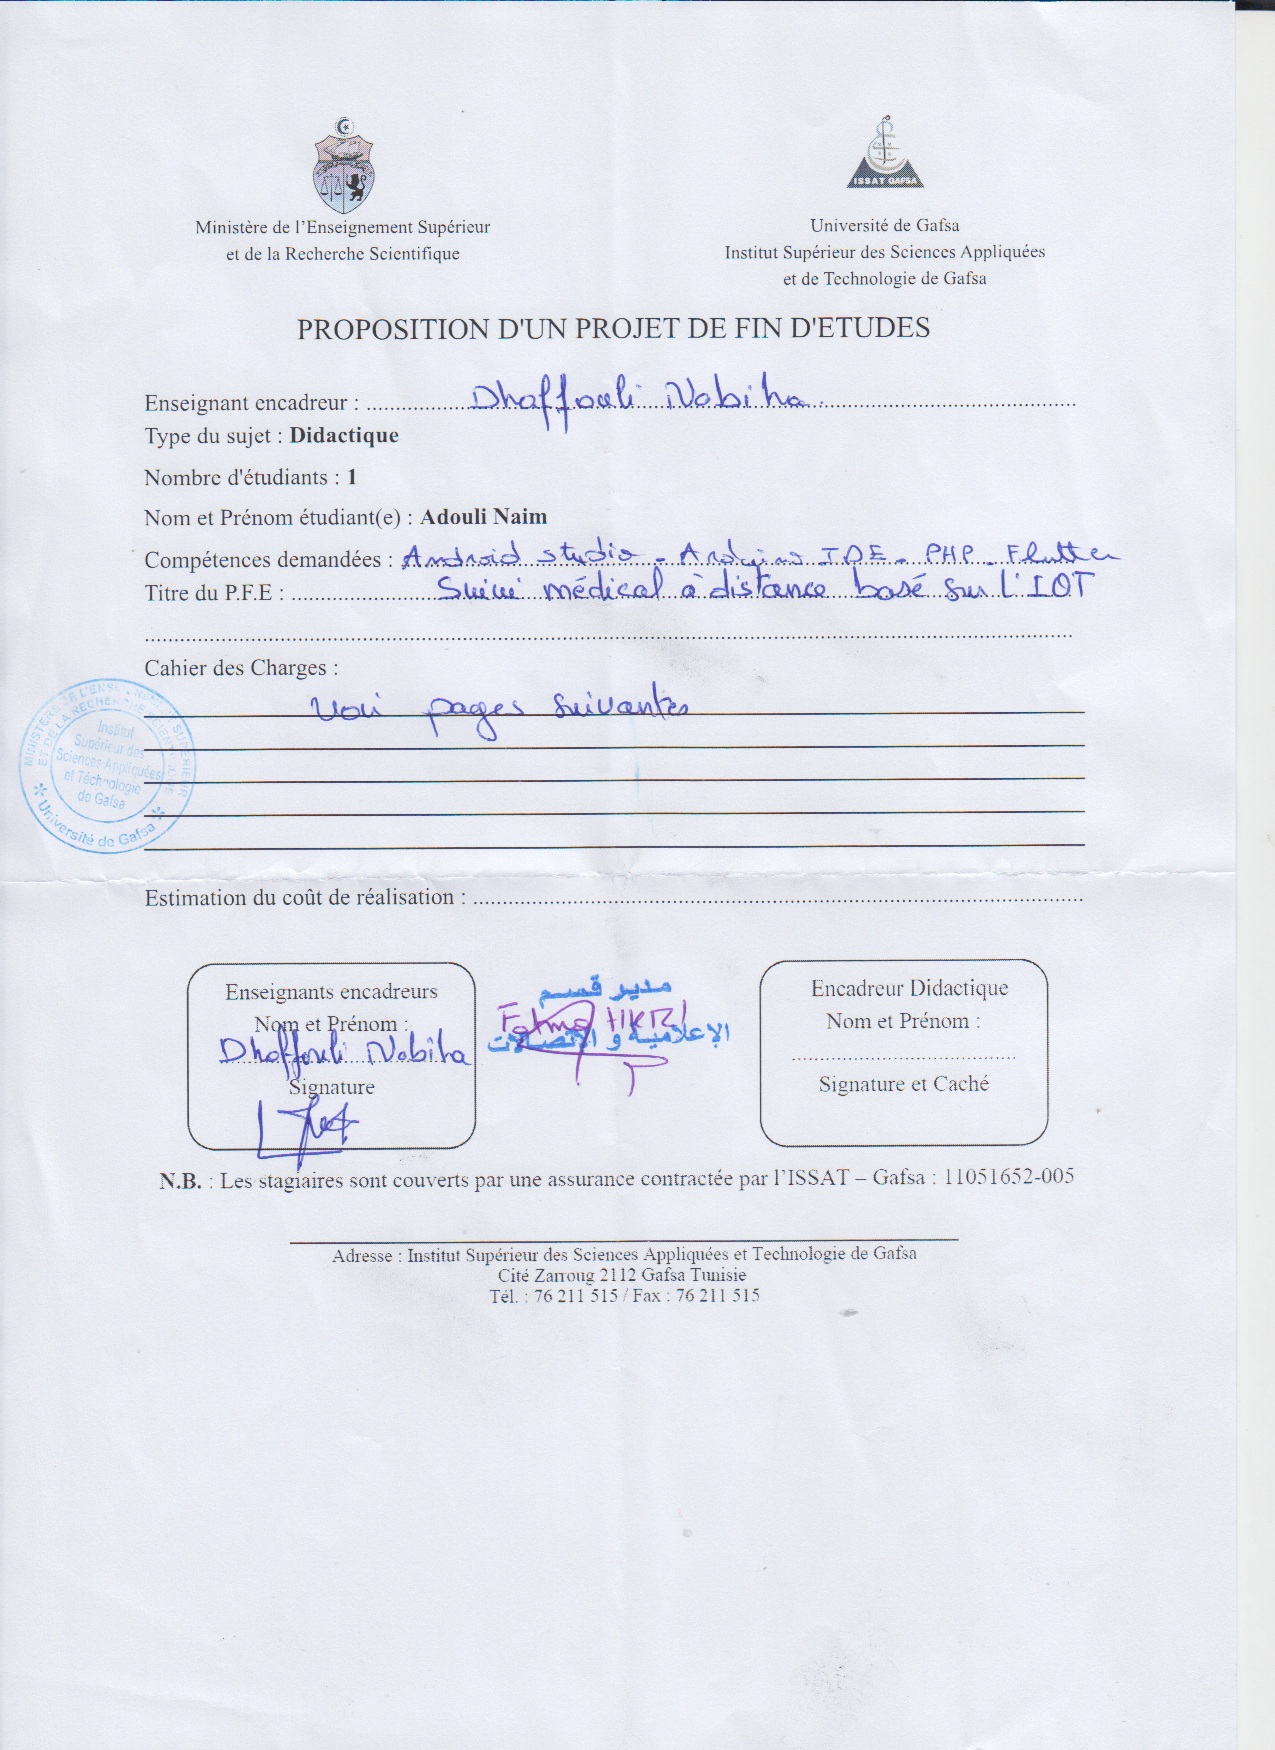 ISSAT GAFSA
Ministère de l'Enseignement Supérieur
et de la Recherche Scientifique
Université de Gafsa
Institut Supérieur des Sciences Appliquées
et de Technologie de Gafsa
PROPOSITION D'UN PROJET DE FIN D'ETUDES
Enseignant encadreur : Dhaffouli Nabiha
Type du sujet : Didactique
Nombre d'étudiants : 1
Nom et Prénom étudiant(e) : Adouli Naim
Compétences demandées : Android studio - Arduino IDE - PHP - Flutter
Titre du P.F.E : Suivi médical à distance basé sur l'IOT
Cahier des Charges :
Voir pages suivantes
MINISTERE DE L'ENSEIGNEMENT SUPERIEUR
ET DE LA RECHERCHE SCIENTIFIQUE
Institut
Supérieur des
Sciences Appliquées
et Téchnologie
de Gafsa
Université de Gafsa
Estimation du coût de réalisation :
Enseignants encadreurs
Nom et Prénom :
Dhaffouli Nabiha
Signature
مدير قسم
الإعلامية و الاتصالات
Fatma
Encadreur Didactique
Nom et Prénom :
Signature et Caché
N.B. : Les stagiaires sont couverts par une assurance contractée par l'ISSAT – Gafsa : 11051652-005
Adresse : Institut Supérieur des Sciences Appliquées et Technologie de Gafsa
Cité Zarroug 2112 Gafsa Tunisie
Tél. : 76 211 515 / Fax : 76 211 515